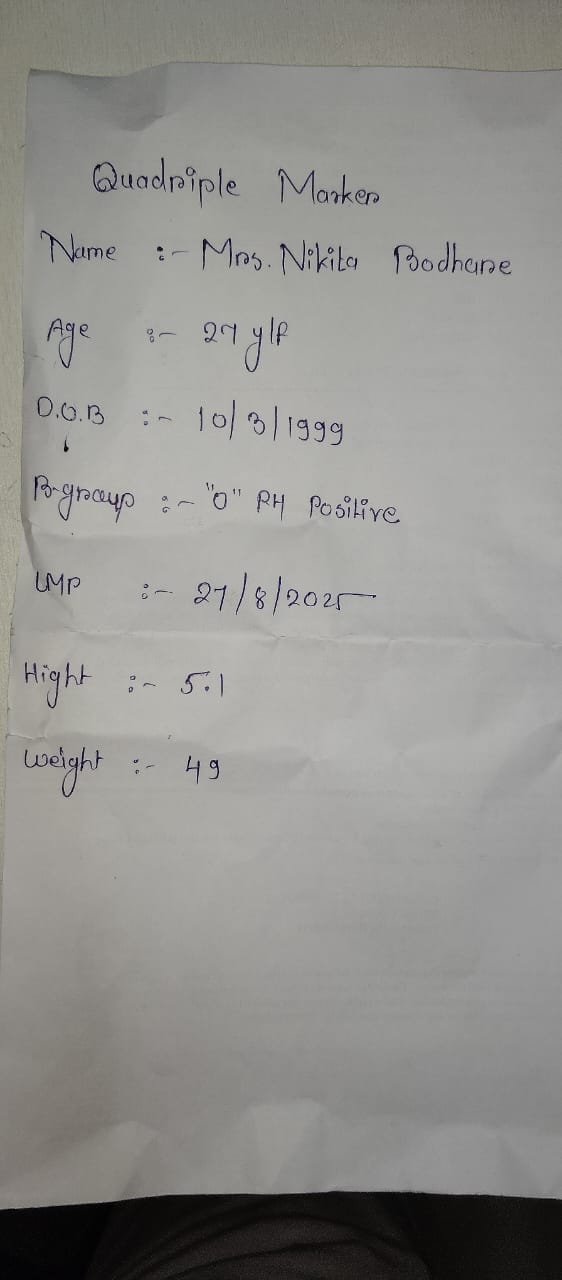 Quadriple Marker
Name :- Mrs. Nikita Bodhane
Age :- 27 y/f
D.O.B :- 10/3/1999
B-group :- "O" RH Positive
LMP :- 27/8/2025
Hight :- 5.1
Weight :- 49